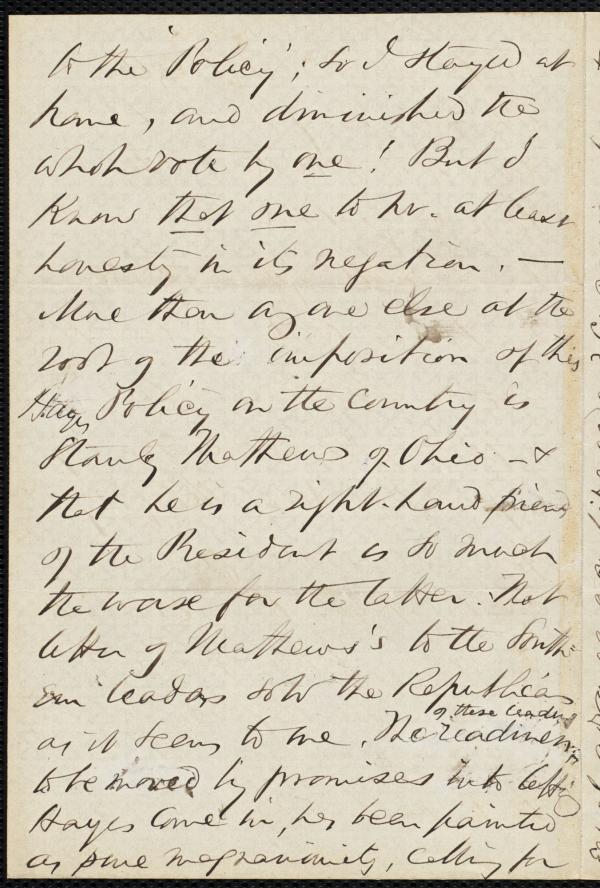 to the 'Policy'; so I stayed at
home, and diminished the
whole vote by one! But I
Know that one to hv. at least
honesty in its negation. —
More than any one else at the
root of the imposition of this
Hayes Policy on the Country is
Stanley Mathews of Ohio — &
that he is a right-hand friend
of the President is so much
the worse for the latter. That
letter of Mathews's to the South-
ern leaders sold the Republicans
as it seems to me. The readiness of these leaders
to be moved by promises into letting
Hayes come in, has been painted
as pure magnanimity, calling for